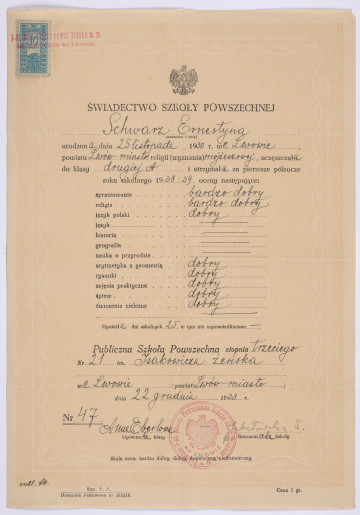 ŚWIADECTWO SZKOŁY POWSZECHNEJ
Schwarz Ernestyna
urodzona dnia 25 listopada 1930 r. we Lwowie,
powiatu Lwów-miasto religii (wyznania) mojżeszowej, uczęszczała
do klasy drugiej A i otrzymała za pierwsze półrocze
roku szkolnego 1938/39 oceny następujące:
sprawowanie bardzo dobry
religia bardzo dobry
język polski dobry
język
historia
geografia
nauka o przyrodzie
arytmetyka z geometrią dobry
rysunki dobry
zajęcia praktyczne dobry
śpiew dobry
ćwiczenia cielesne dobry
Opuściła dni szkolnych 25, w tym nie usprawiedliwiono —
Publiczna Szkoła Powszechna stopnia trzeciego
Nr. 21 im. Isakowicza żeńska
we Lwowie powiat Lwów-miasto
dnia 22 grudnia 1938.
Nr 47
Opiekunka klasy
Kierowniczka Szkoły
Skala ocen: bardzo dobry, dobry, dostateczny, niedostateczny.
Cena 1 gr.